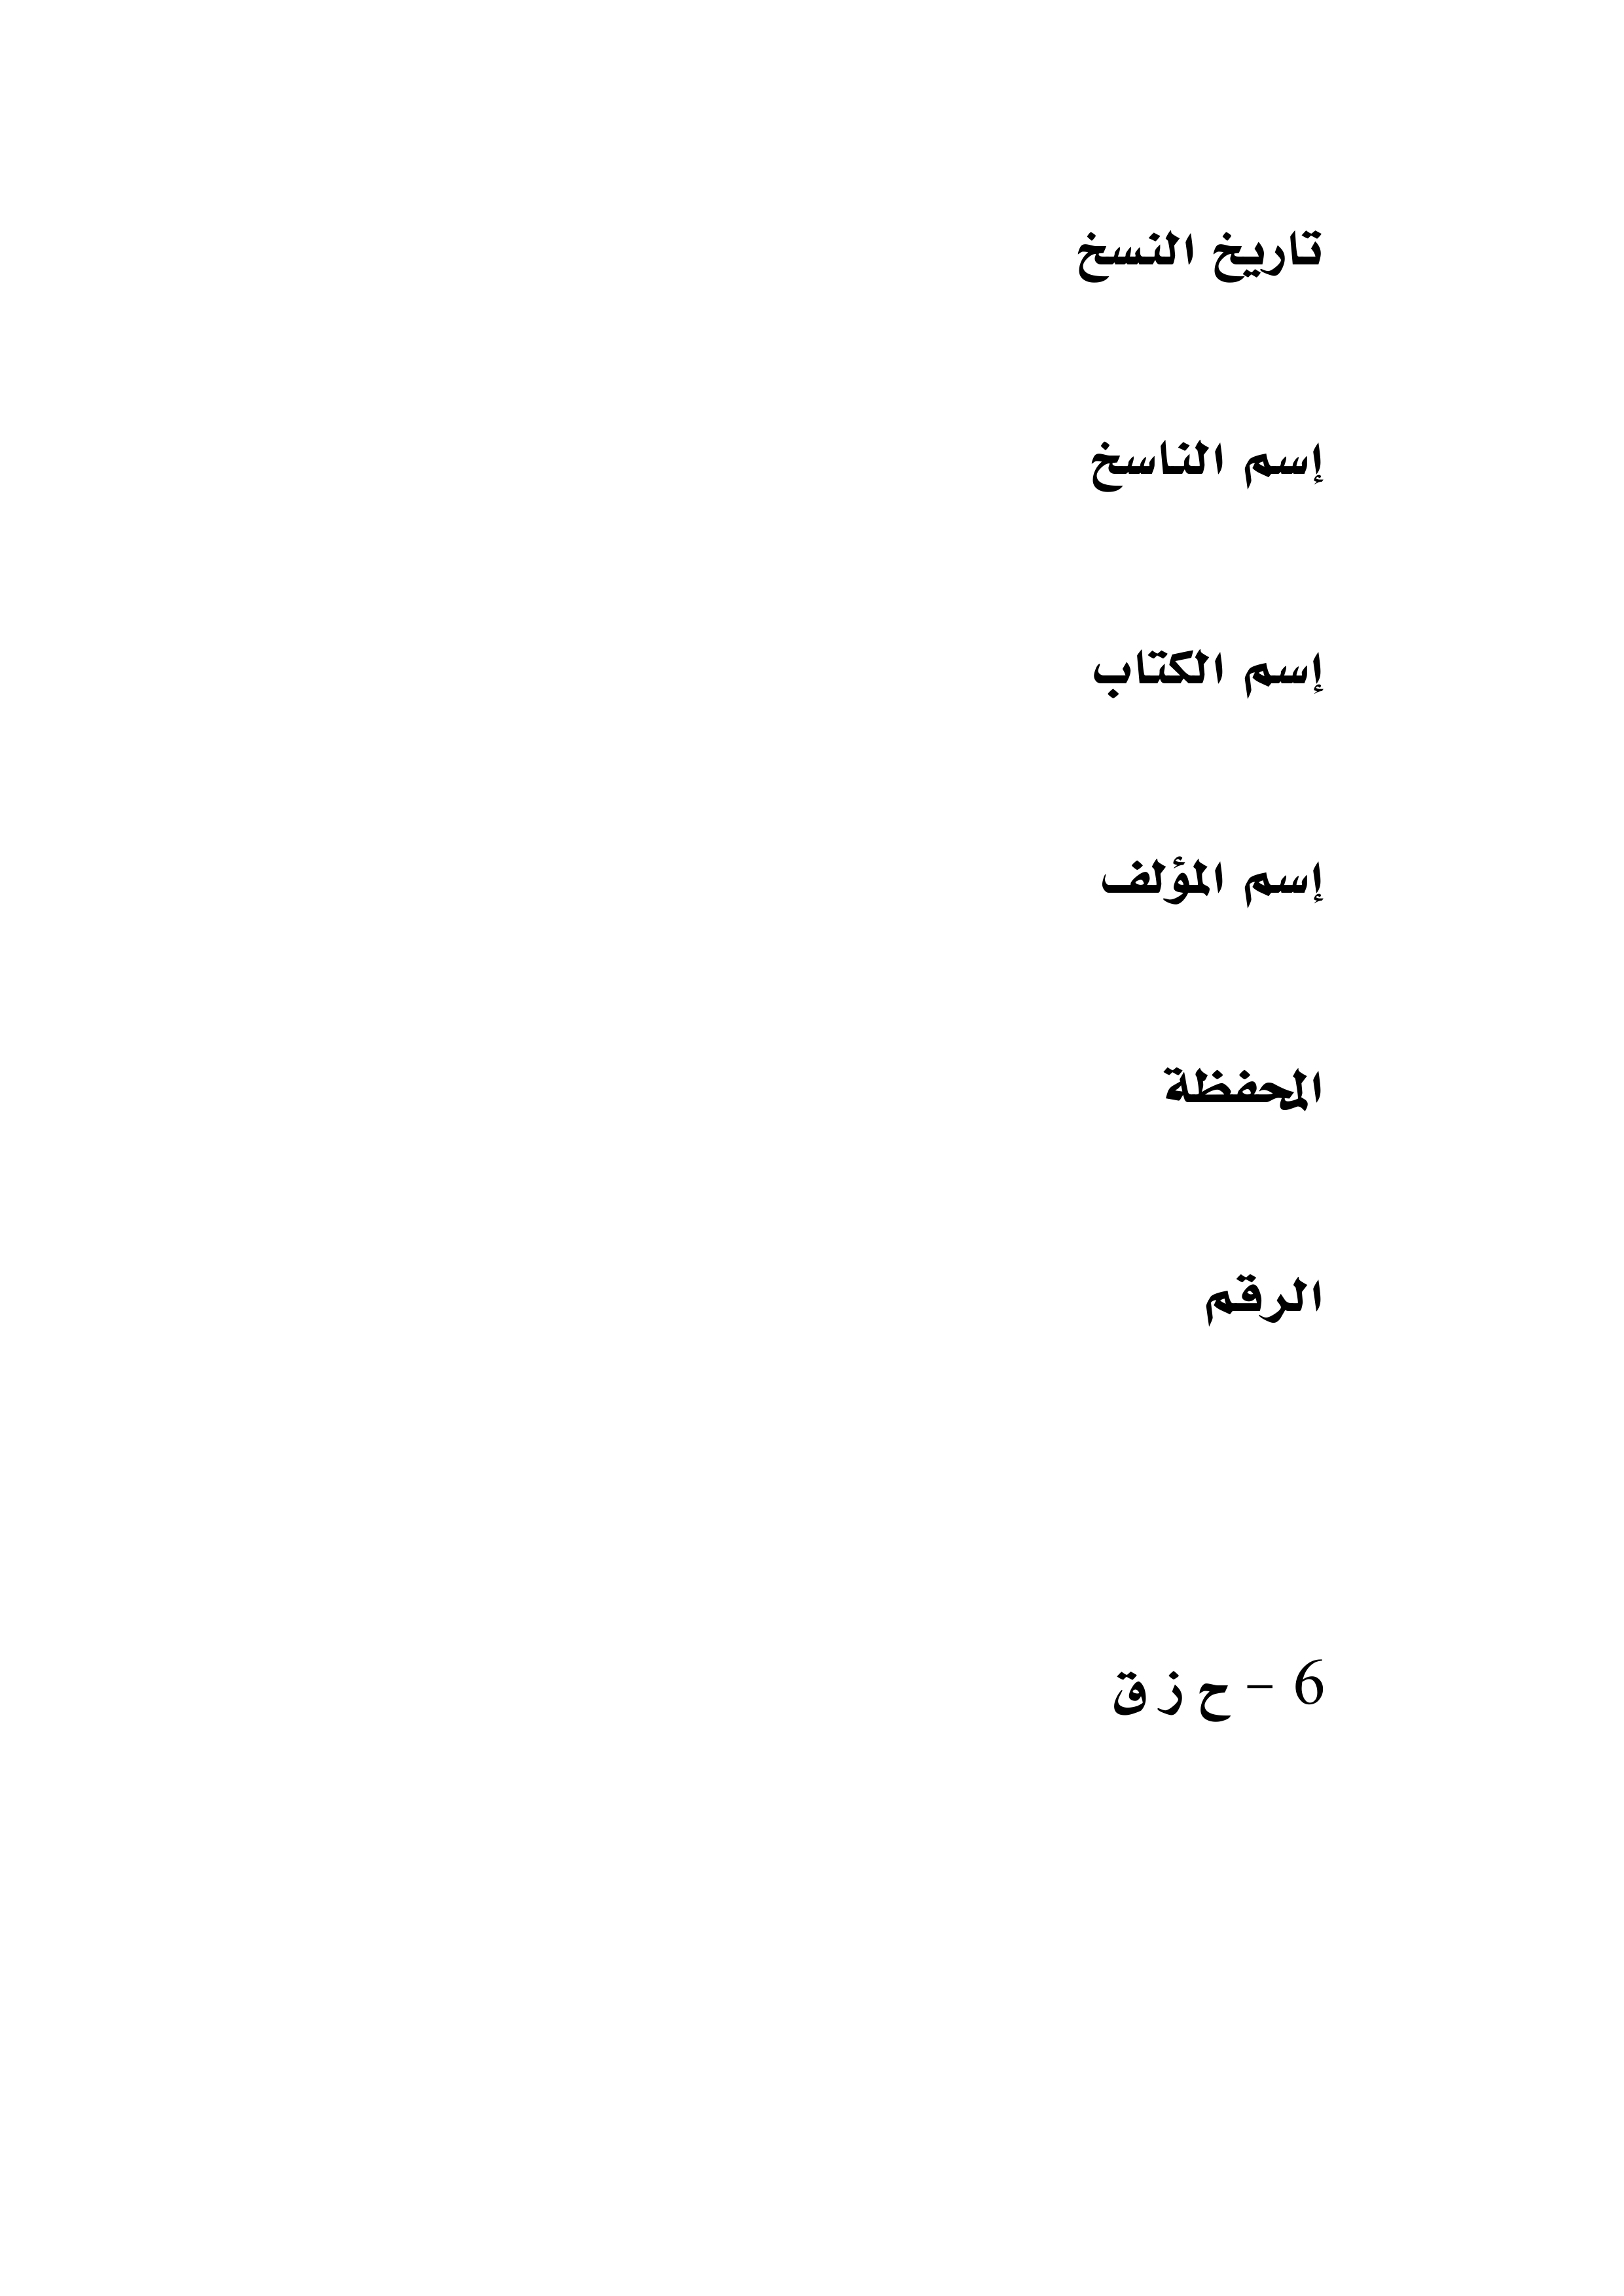 تاريخ النسخ
إسم الناسخ
إسم الكتاب
إسم المؤلف
المحفظة
الرقم
6 – ح ز ق